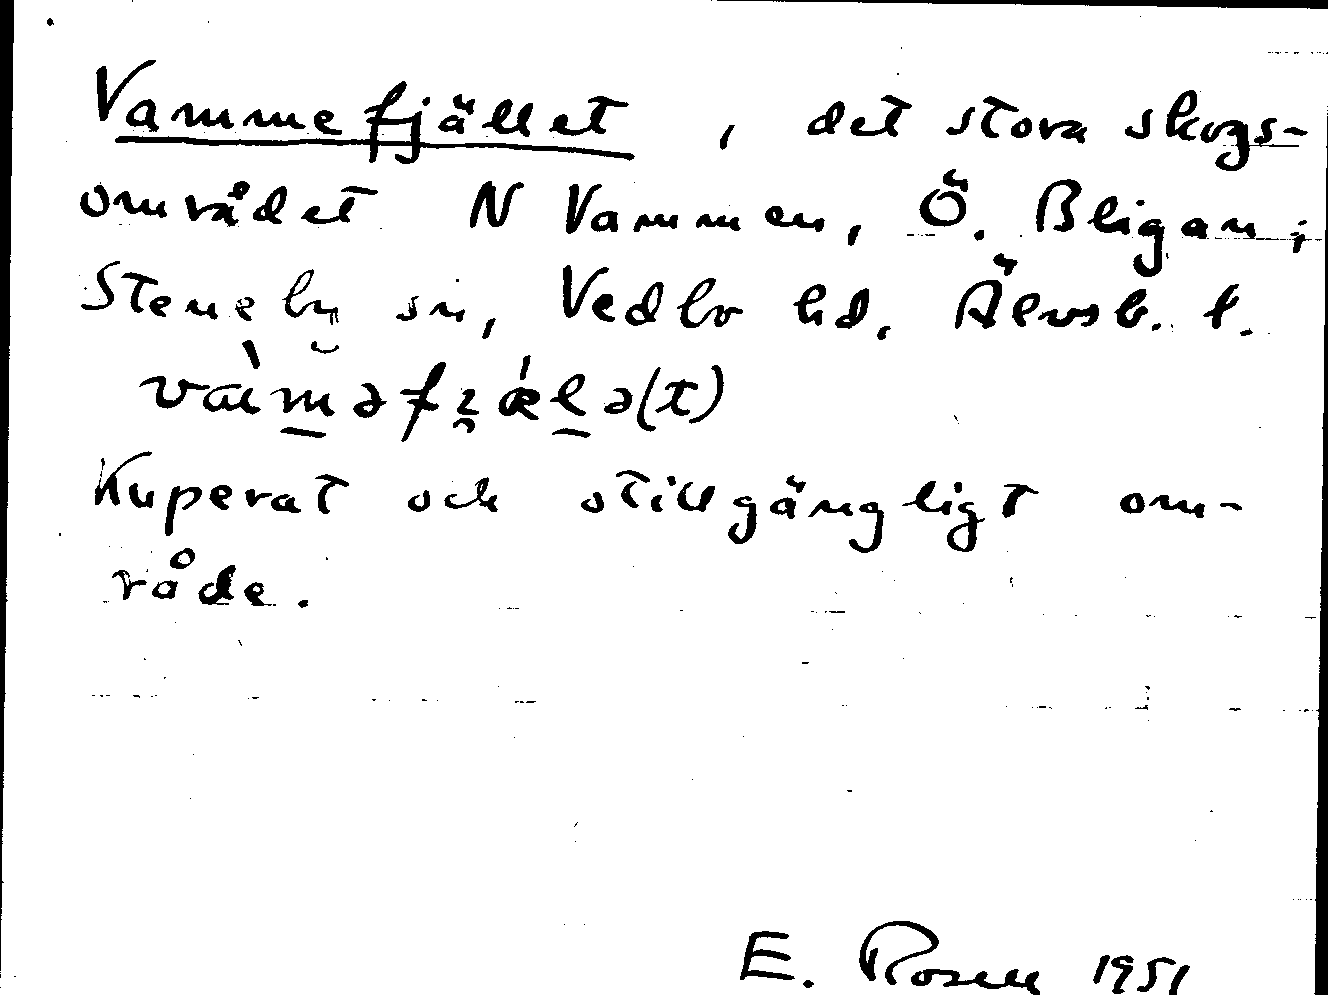 Vammefjället, det stora skogs-
området N Vammen, Ö. Bligan;
Steneby sn, Vedbo hd, Älvsb. l.
Kuperat och otillgängligt om-
råde.
E. Rosen 1951